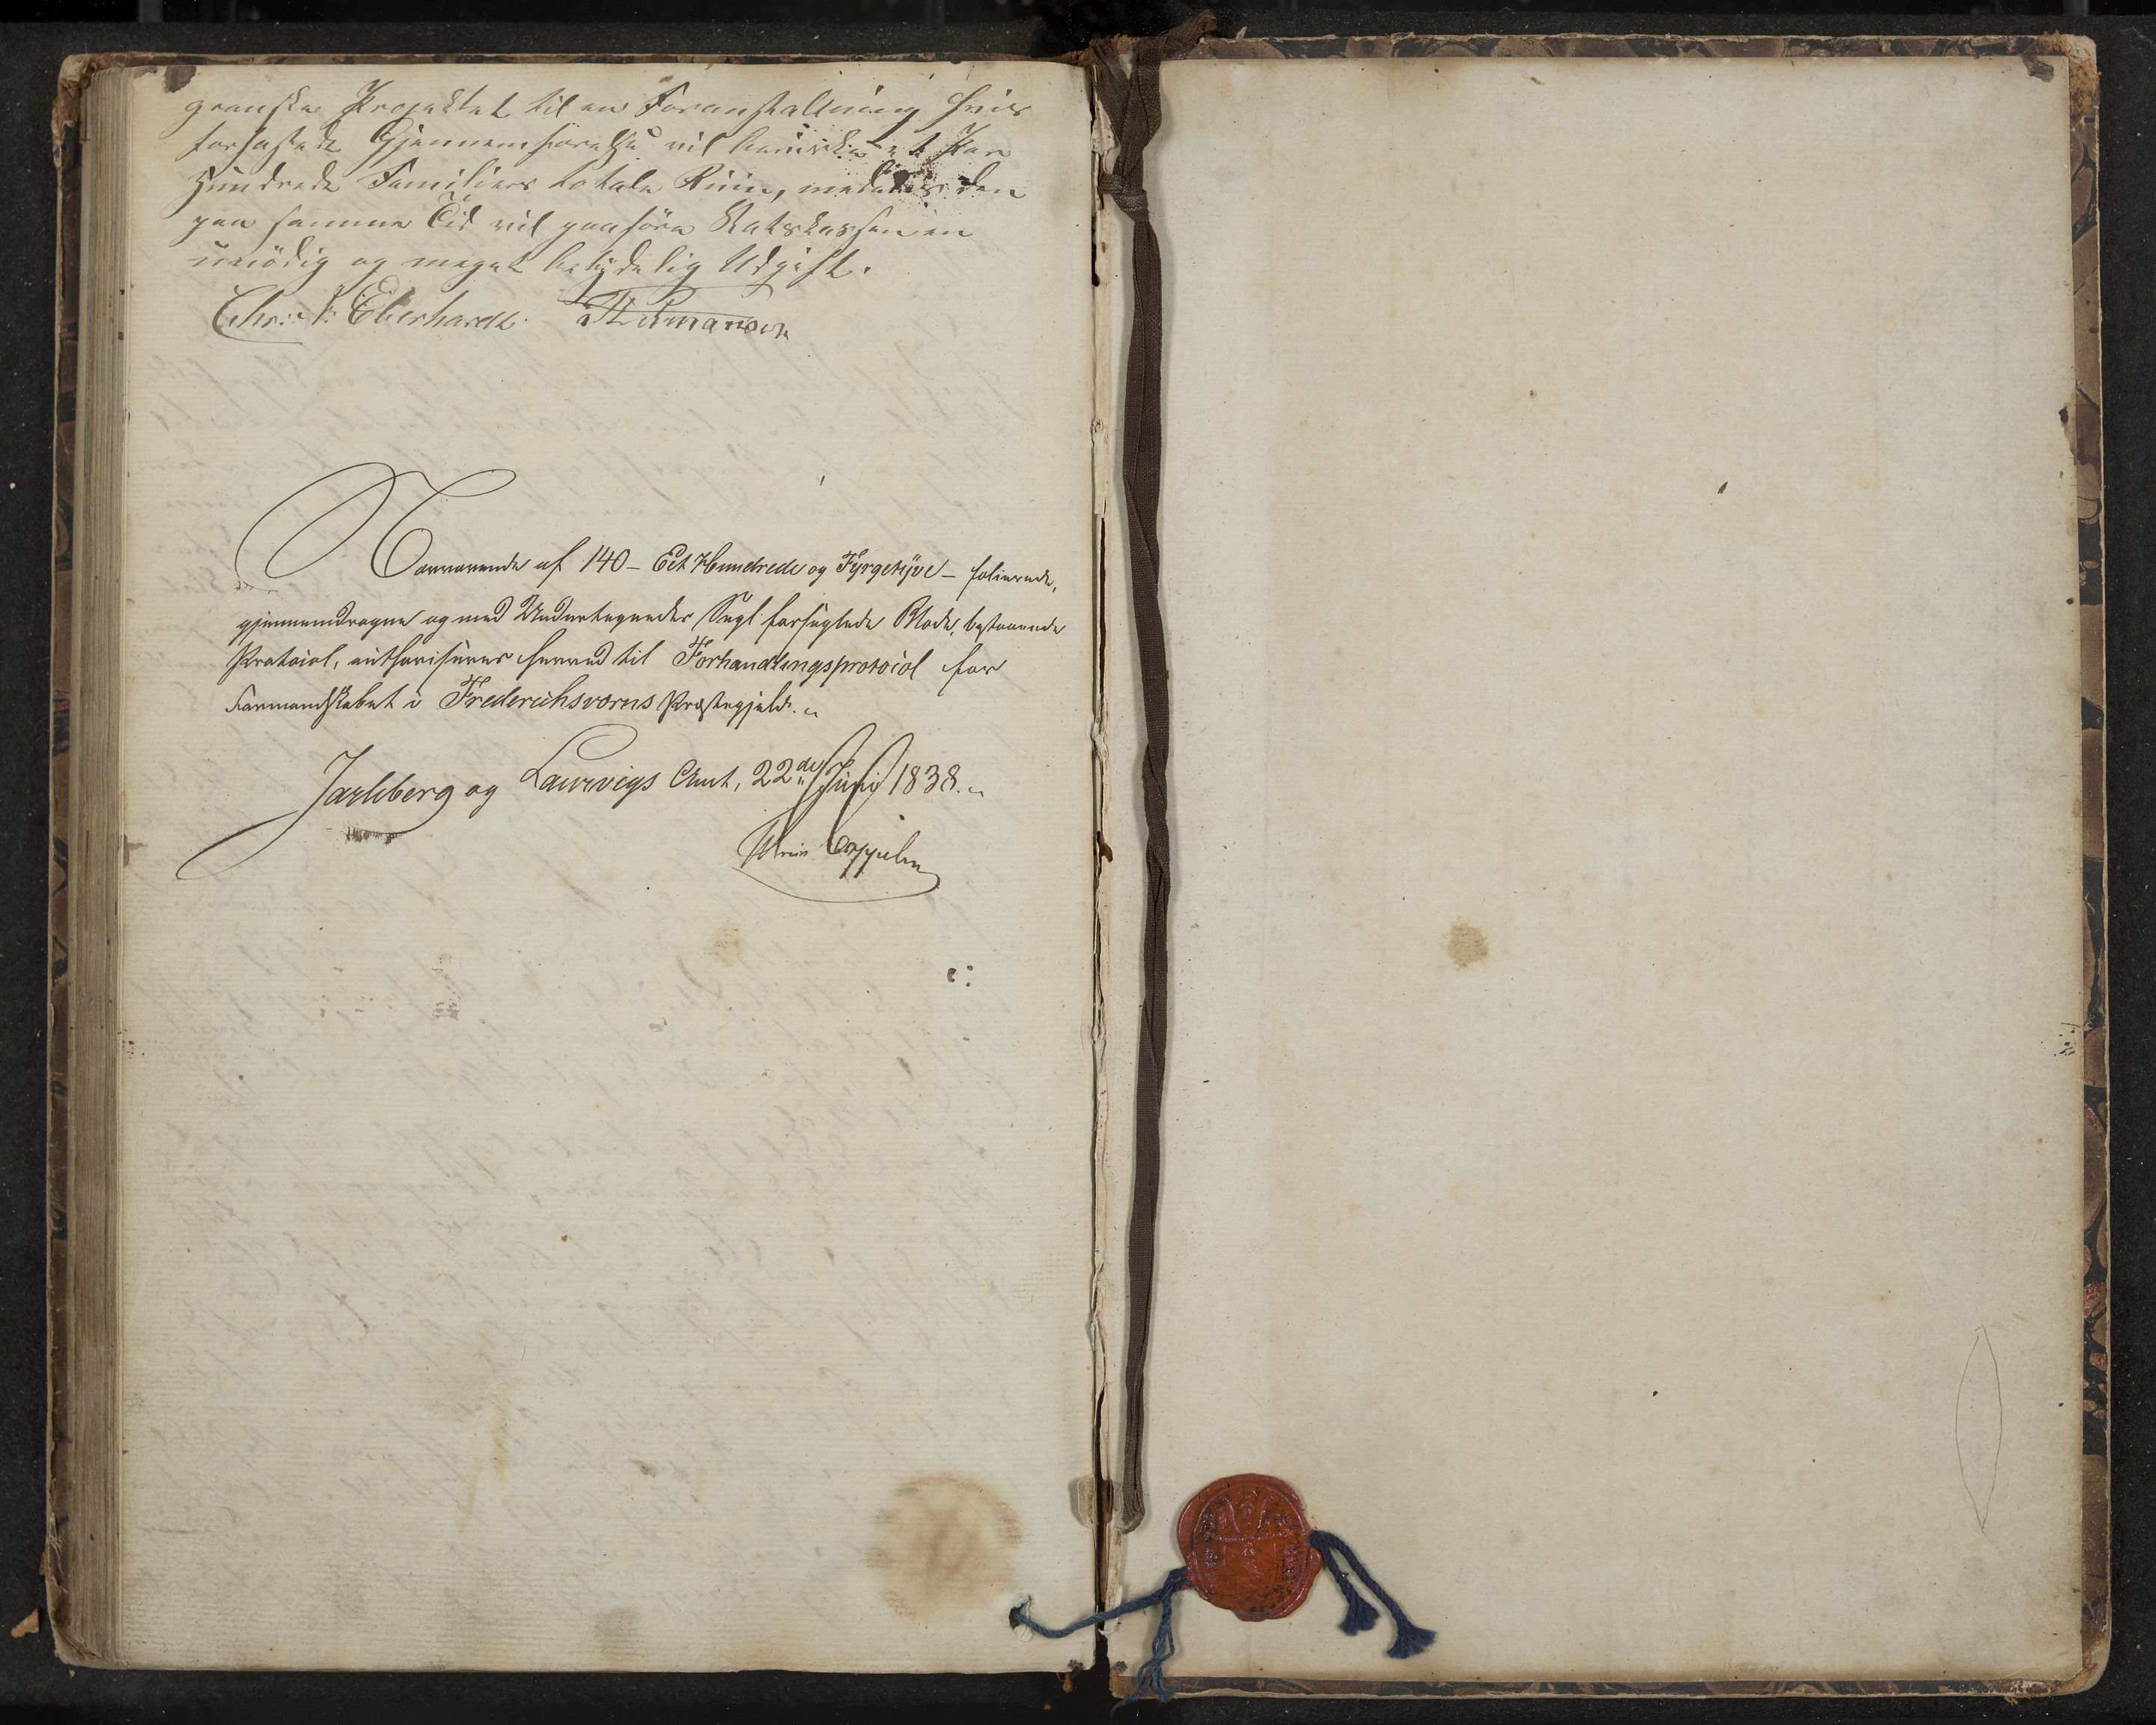 granske Projektet til en Foranstaltning hvis
forhastede Gjennemførelse vil bevirke et Par
Hundrede Familiers totale Ruin, medens den
paa samme Tid vil paaføre Statskassen en
unödig og meget betydelig Udgift.
Chr: F: Eberhardt.
Nærværende af 140 - Eet Hundrede og Fyrgetyve - folierede,
gjennemdragne og med Undertegnedes Segl forseglede Blade, bestaaende
Protocol, authoriseres herved til Forhandlingsprotocol for
Formandskabet i Frederichsværns Præstegjeld.
Jarlsberg og Laurvigs Amt, 22de Juni 1838.
Cappelen